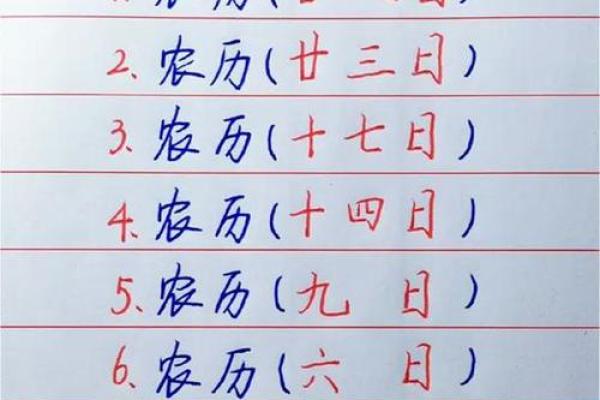 农历(
2、农历(廿三日)
3、农历(十七日)
4、农历(十四日)
5、农历(九 日)
6、农历(六 日)